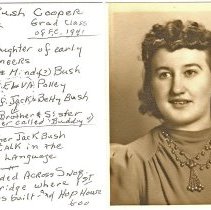 ush Cooper
Grad Class
of F.C. 1941
ughter of early
neers
Mind(?) Bush
Polley
Jack & Betty Bush
Brother & Sister
er called "Buddy")
her Jack Bush
alk in the
Language
ded Across Snoq
idge where 1st
s built and Hop House
too